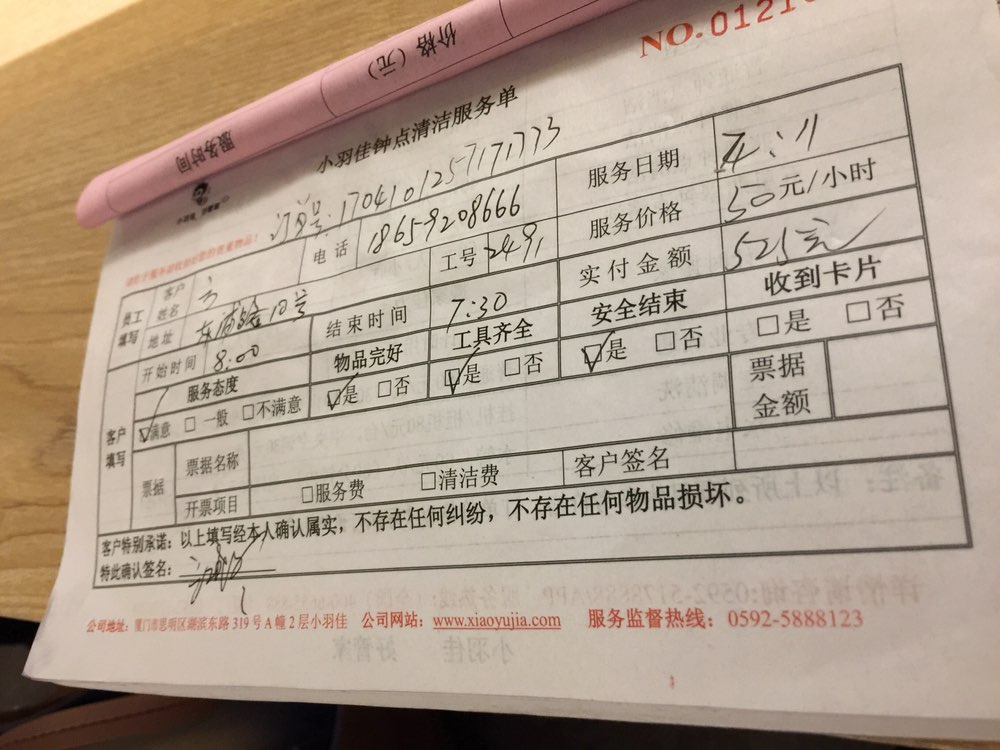 价格（元）
服务时间
NO.0121
小羽佳钟点清洁服务单
小羽佳 好管家
订单号:1704101257171773
请您主动务必收拾好您的贵重物品！
员工填写 客户姓名 电话 18659208666 服务日期 11
地址 10号 工号 2491 服务价格 50元/小时
开始时间 8:00 结束时间 7:30 实付金额 525元
客户填写 服务态度 物品完好 工具齐全 安全结束 收到卡片
☑满意 □一般 □不满意 ☑是 □否 ☑是 □否 ☑是 □否 □是 □否
票据 票据名称 票据金额
开票项目 □服务费 □清洁费 客户签名
客户特别承诺：以上填写经本人确认属实，不存在任何纠纷，不存在任何物品损坏。
特此确认签名：
公司地址：厦门市思明区湖滨东路 319 号 A 幢 2 层小羽佳 公司网站：www.xiaoyujia.com 服务监督热线：0592-5888123